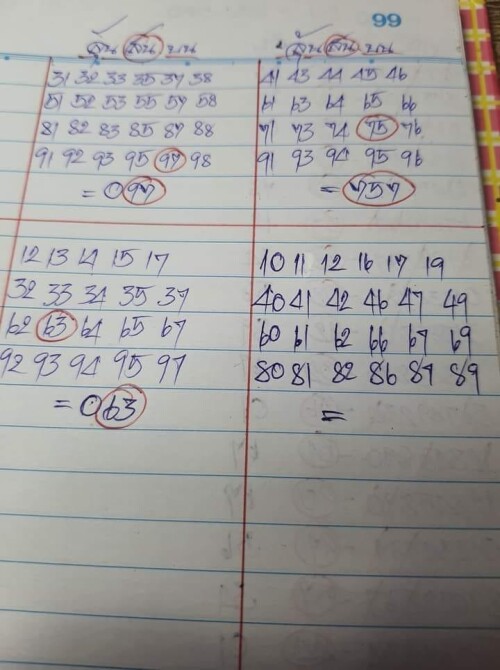 99
31 32 33 35 37 38
51 52 53 55 57 58
81 82 83 85 87 88
91 92 93 95 97 98
= 097
41 43 44 45 46
61 63 64 65 66
71 73 74 75 76
91 93 94 95 96
= 757
12 13 14 15 17
32 33 34 35 37
62 63 64 65 67
92 93 94 95 97
= 063
10 11 12 16 17 19
40 41 42 46 47 49
60 61 62 66 67 69
80 81 82 86 87 89
=